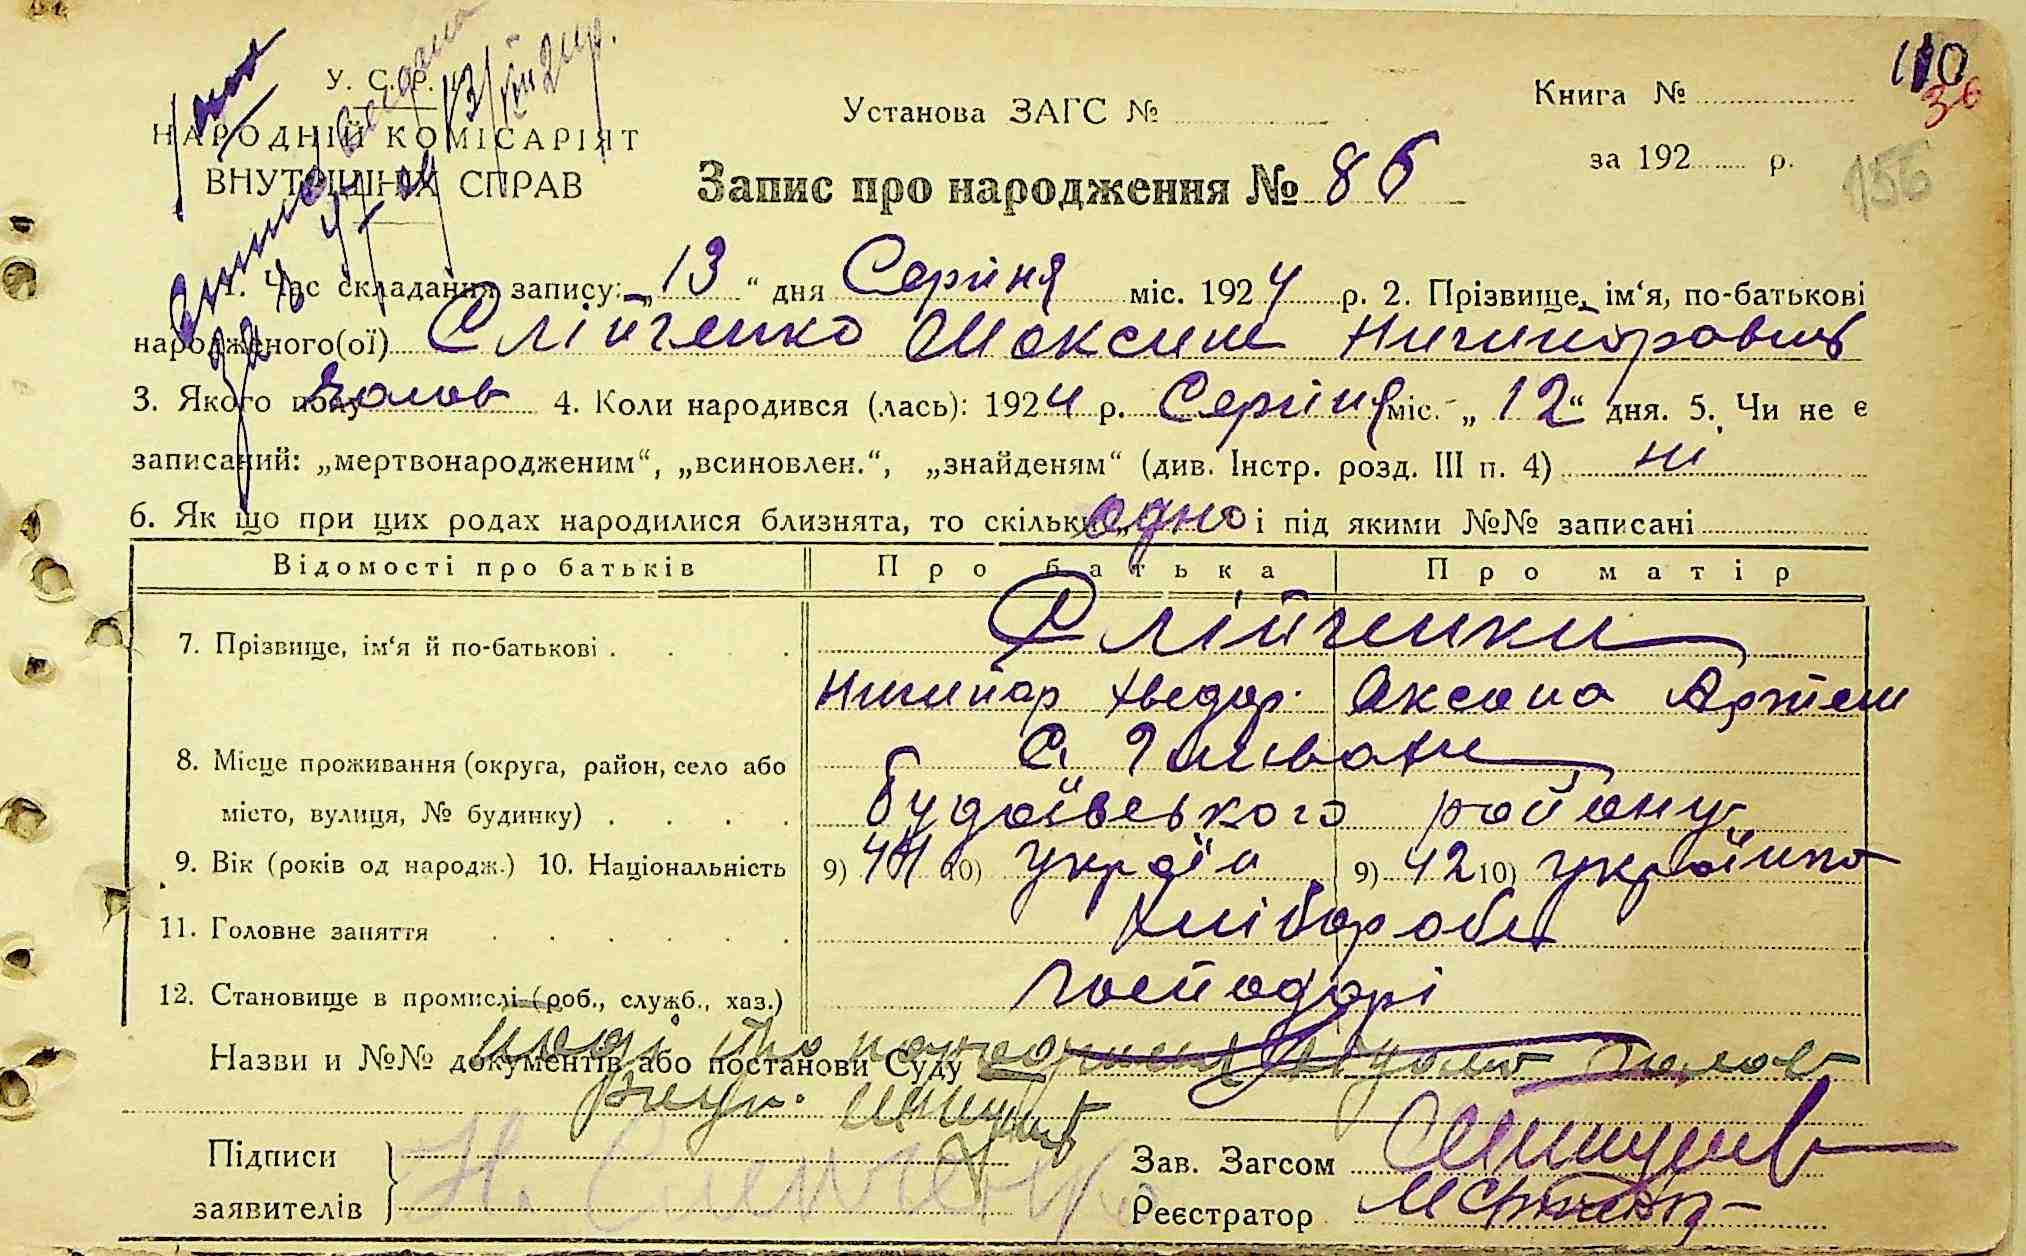 У. С. Р. Р.
НАРОДНІЙ КОМІСАРІЯТ
ВНУТРІШНІХ СПРАВ
Установа ЗАГС №
Книга №
110
36
за 192 р.
156
Запис про народження № 86
1. Час складання запису: „13“ дня Серпня міс. 1924 р. 2. Прізвище, ім‘я, по-батькові
народженого(ої) Слійченко Максим Ничипорович
3. Якого полу чолов 4. Коли народився (лась): 1924 р. Серпня міс. „12“ дня. 5. Чи не є
записаний: „мертвонародженим“, „всиновлен.“, „знайденям“ (див. Інстр. розд. III п. 4) ні
6. Як що при цих родах народилися близнята, то скільки „одно і під якими №№ записані
Відомості про батьків Про батька Про матір
7. Прізвище, ім‘я й по-батькові . Слійченки
Ничипор Хведор. Оксана Артем
8. Місце проживання (округа, район, село або С.
місто, вулиця, № будинку) . Будаївського району
9. Вік (років од народж.) 10. Національність 9) 44 10) україн 9) 42 10) українка
11. Головне заняття Хлібороби
12. Становище в промислі (роб., служб., хаз.) господарі
Назви и №№ документів або постанови Суду
Підписи
заявителів
Зав. Загсом
Реєстратор